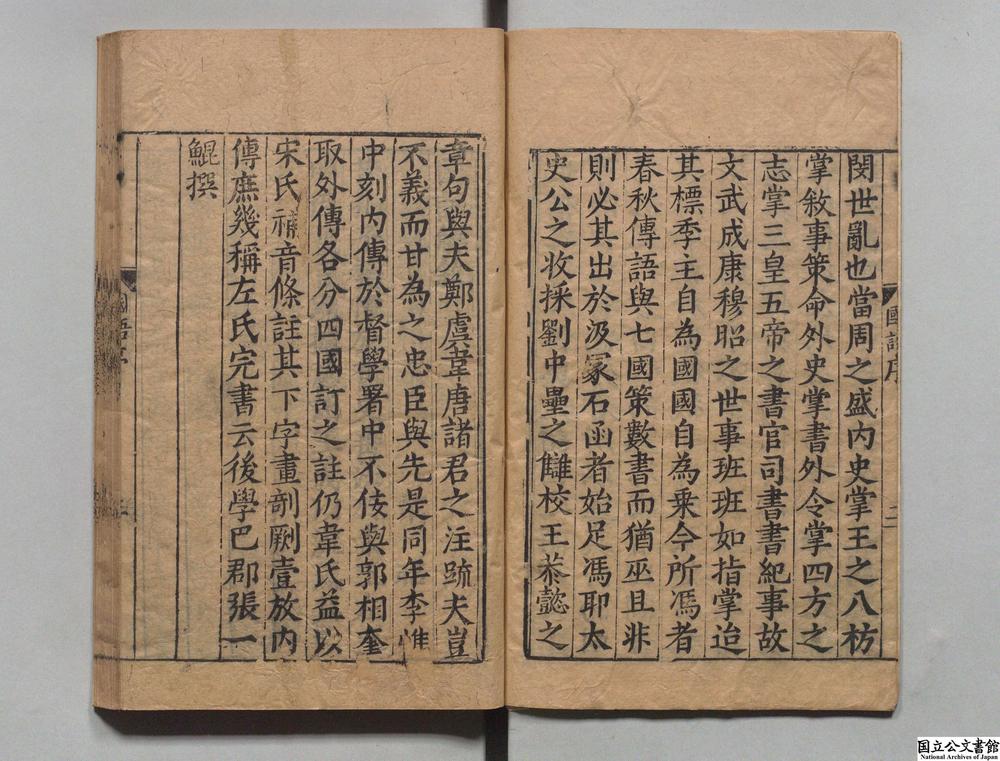 閔世亂也當周之盛內史掌王之八枋
掌敘事策命外史掌書外令掌四方之
志掌三皇五帝之書官司書書紀事故
文武成康穆昭之世事班班如指掌迨
其標季主自為國國自為乗今所馮者
春秋傳語與七國策數書而猶巫且非
則必其出於汲冢石函者始足馮耶太
史公之收採劉中壘之讎校王恭懿之
國語序
二
章句與夫鄭虞韋唐諸君之注疏夫豈
不義而甘為之忠臣與先是同年李惟
中刻內傳於督學署中不佞與郭相奎
取外傳各分四國訂之註仍韋氏益以
宋氏補音條註其下字畫剞劂壹放內
傳庶幾稱左氏完書云後學巴郡張一
鯤撰
国立公文書館
National Archives of Japan